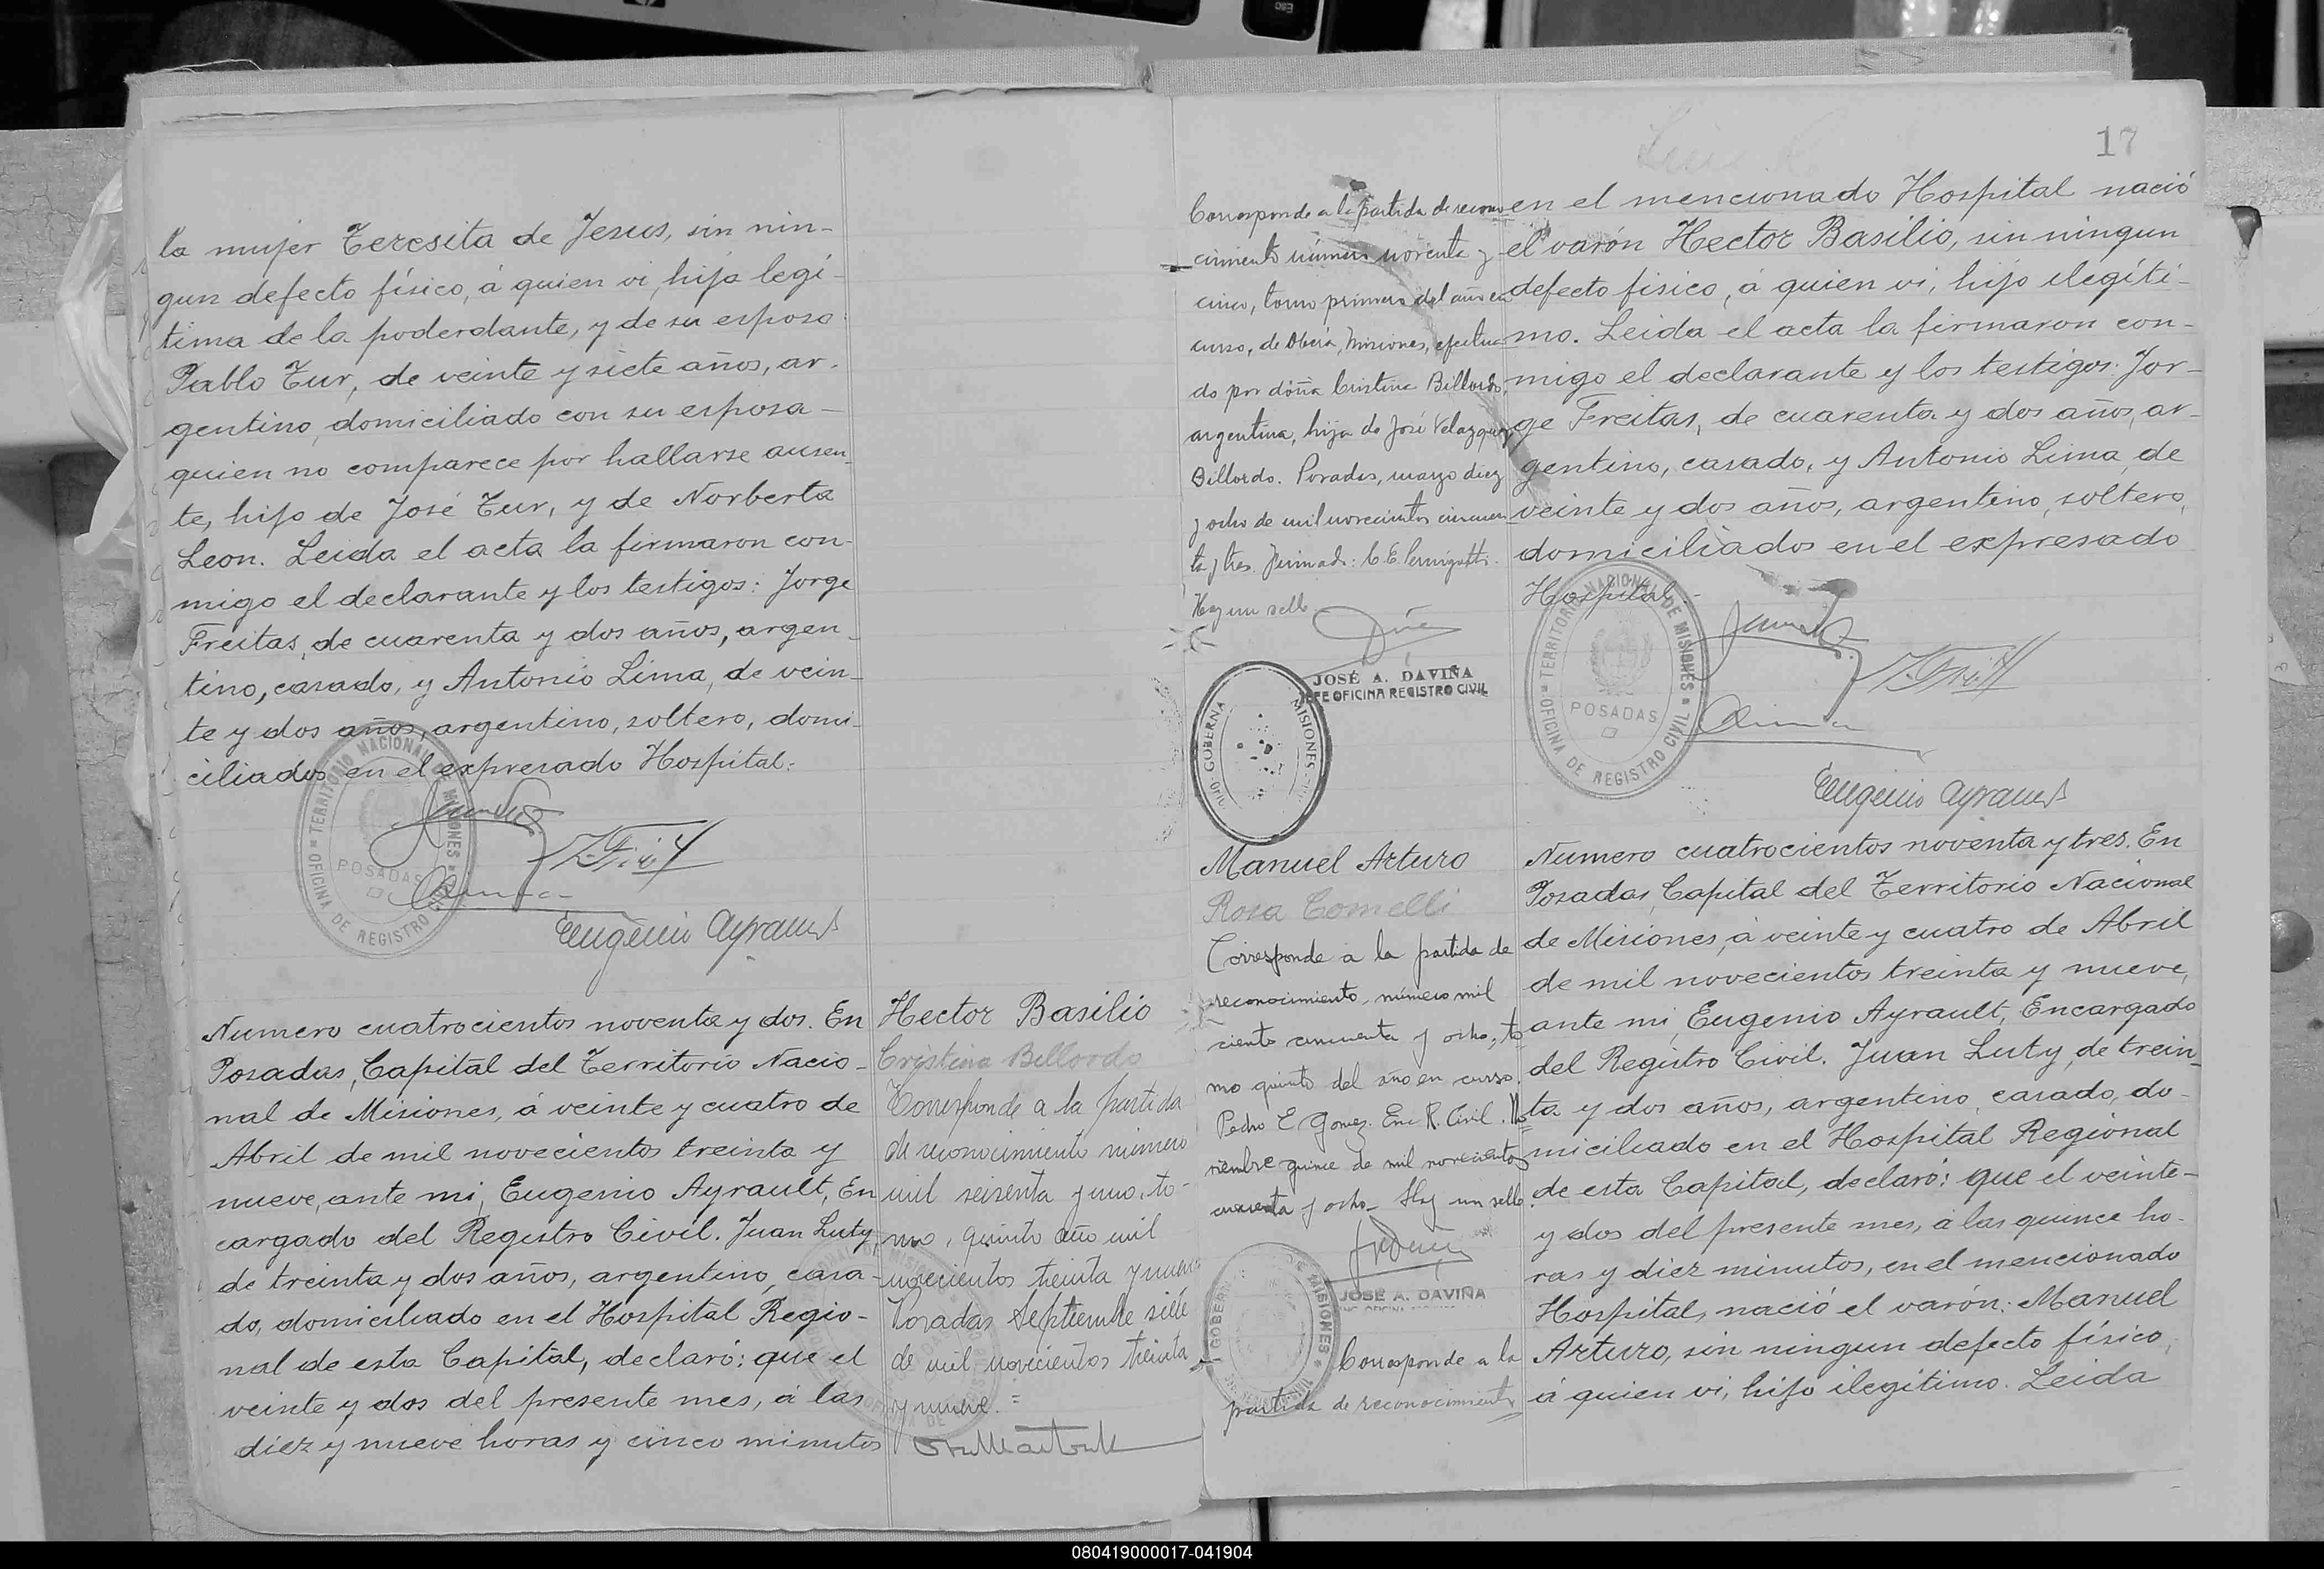 la mujer Teresita de Jesus, sin nin-
gun defecto físico, á quien vi, hija legí-
tima de la poderdante, y de su esposo
Pablo Tur, de veinte y siete años, ar-
gentino, domiciliado con su esposa
quien no comparece por hallarse ausen-
te, hijo de José Tur, y de Norberta
Leon. Leida el acta la firmaron con-
migo el declarante y los testigos: Jorge
Freitas, de cuarenta y dos años, argen-
tino, casado, y Antonio Lima, de vein-
te y dos años, argentino, soltero, domi-
ciliados en el expresado Hospital:
TERRITORIO NACIONAL DE MISIONES
POSADAS
OFICINA DE REGISTRO CIVIL
Eugenio Ayrault
Numero cuatrocientos noventa y dos. En
Posadas, Capital del Territorio Nacio-
nal de Misiones, á veinte y cuatro de
Abril de mil novecientos treinta y
nueve, ante mi, Eugenio Ayrault, En
cargado del Registro Civil. Juan Luty,
de treinta y dos años, argentino, casa-
do, domiciliado en el Hospital Regio-
nal de esta Capital, declaró: que el
veinte y dos del presente mes, á las
diez y nueve horas y cinco minutos
Hector Basilio
Cristina Billordo
Corresponde a la partida
de reconocimiento número
mil seisenta y uno, to-
mo, quinto año mil
novecientos treinta y nueve
Posadas Septiembre siete
de mil novecientos treinta
y nueve.=
17
Corresponde a la partida de recono-
cimiento número noventa y
cinco, tomo primero del año en
curso, de Oberá, Misiones, efectua-
do por doña Cristina Billordo,
argentina, hija de José Velazquez
Billordo. Posadas, marzo diez
y ocho de mil novecientos cincuen-
ta y tres. Firmado: C. E.
Hay un sello
JOSÉ A. DAVIÑA
JEFE OFICINA REGISTRO CIVIL
GOBERNA
MISIONES
Manuel Arturo
Rosa Comelli
Corresponde a la partida de
reconocimiento, número mil
ciento cincuenta y ocho, to
mo quinto del año en curso.
Pedro E. Gomez. Enc R. Civil. No
viembre quince de mil novecientos
cuarenta y ocho- Hay un sello.
JOSÉ A. DAVIÑA
GOBERN
DE MISIONES
Corresponde a la
partida de reconocimiento
en el mencionado Hospital nació
el varón Hector Basilio, sin ningun
defecto fisico, á quien vi, hijo ilegíti-
mo. Leida el acta la firmaron con-
migo el declarante y los testigos: Jor-
ge Freitas, de cuarenta y dos años, ar-
gentino, casado, y Antonio Lima, de
veinte y dos años, argentino, soltero,
domiciliados en el expresado
Hospital:
TERRITORIO NACIONAL DE MISIONES
POSADAS
OFICINA DE REGISTRO CIVIL
Eugenio Ayrault
Numero cuatrocientos noventa y tres. En
Posadas, Capital del Territorio Nacional
de Misiones, á veinte y cuatro de Abril
de mil novecientos treinta y nueve,
ante mi, Eugenio Ayrault, Encargado
del Registro Civil. Juan Luty, de trein-
ta y dos años, argentino, casado, do-
miciliado en el Hospital Regional
de esta Capital, declaró: que el veinte-
y dos del presente mes, á las quince ho-
ras y diez minutos, en el mencionado
Hospital, nació el varón: Manuel
Arturo, sin ningun defecto físico,
á quien vi, hijo ilegitimo. Leida
080419000017-041904